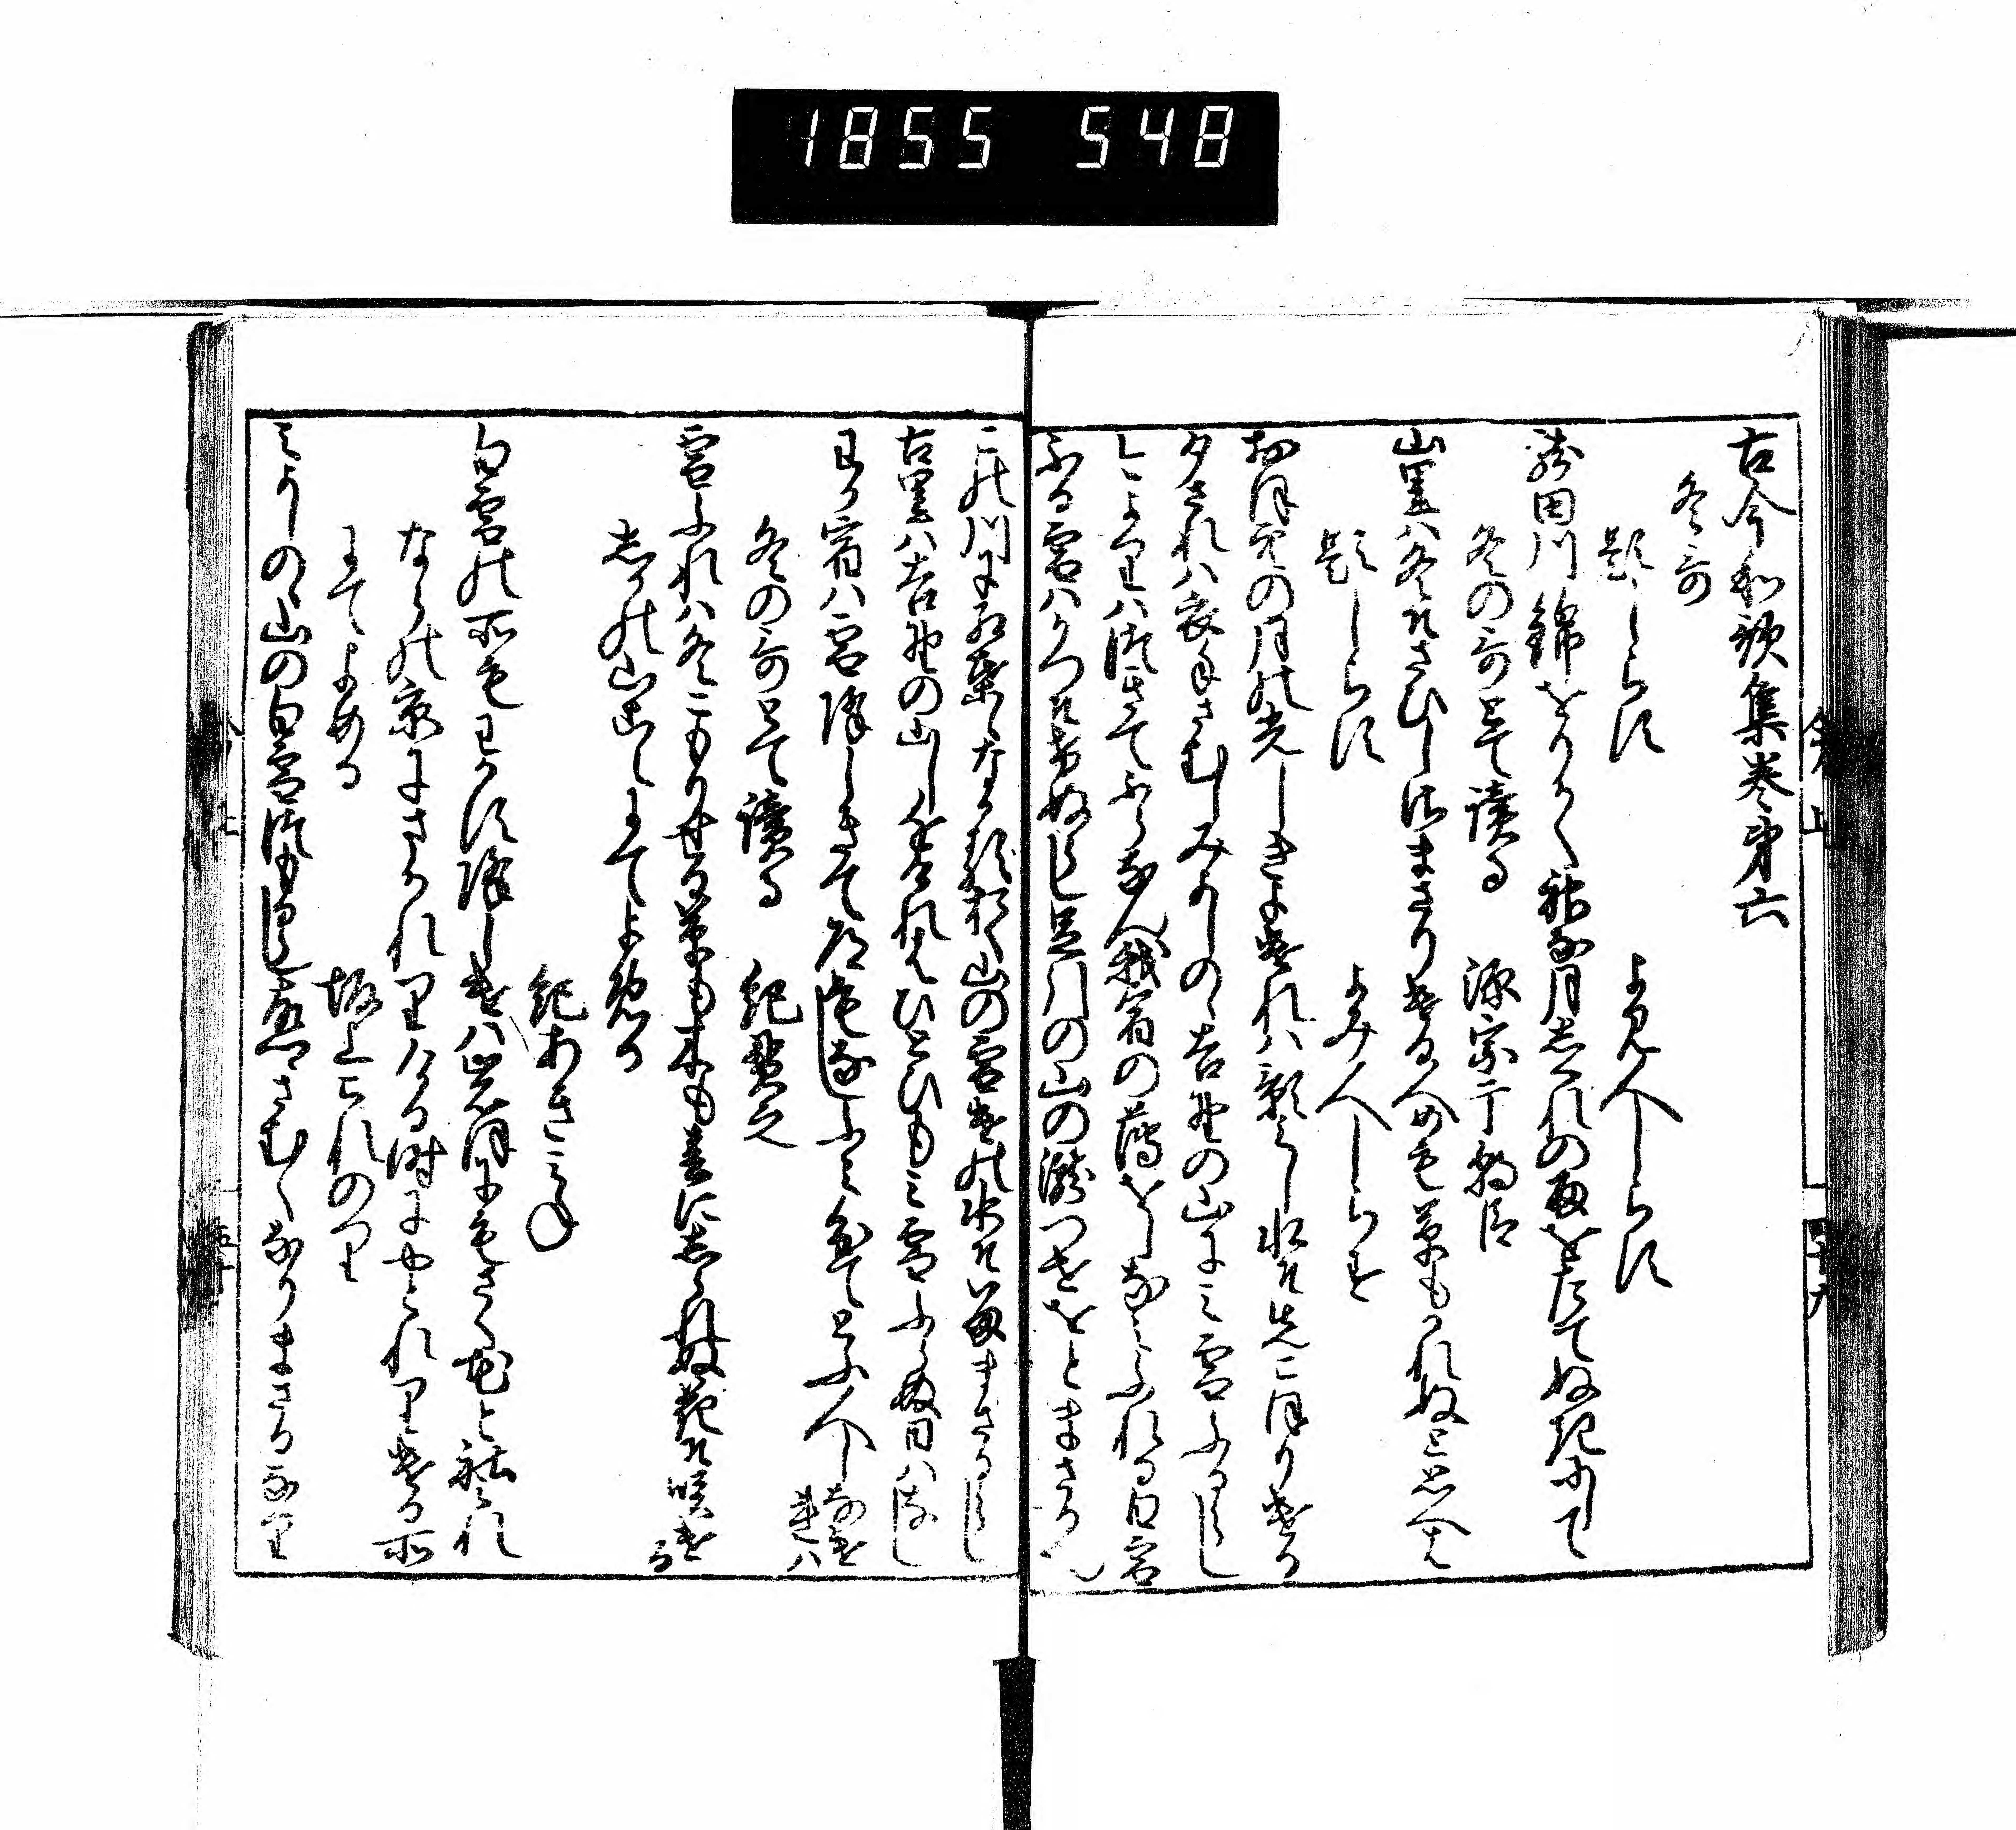 1855 548
古今和歌集巻第六
冬哥
題しらす
よみ人しらす
龍田川錦をりかく神な月しくれの雨をたてぬきにして
冬の哥とて讀る
源宗于朝臣
山里は冬そさひしさまさりける人めも草もかれぬと思へは
題しらす
よみ人しらす
おほそらの月の光しきよけれは影みし水そ先こほりける
夕されは衣手さむしみよしのゝ吉野の山にみ雪ふるらし
今よりはつきてふらなん我宿の薄をしなみふれる白雪
ふる雪はかつそけぬらし足引の山の瀧つせをとまさるなり
この川に紅葉ゝなかる奥山の雪けの水そ今まさるらし
古里は吉野の山し近けれはひとひもみ雪ふらぬ日はなし
わか宿は雪降しきて道もなしふみ分てとふ人しなけれは
冬の哥とて讀る
紀貫之
雪ふれは冬こもりせる草も木も春にしられぬ花そ咲ける
しかの山こえにてよめる
紀あきみね
白雪の所もわかす降しけは巌にもさく花とこそみれ
ならの京にまかれりける時にやとれりける所
にてよめる
坂上これのり
みよしのゝ山の白雪つもるらし古里さむくなりまさるなり